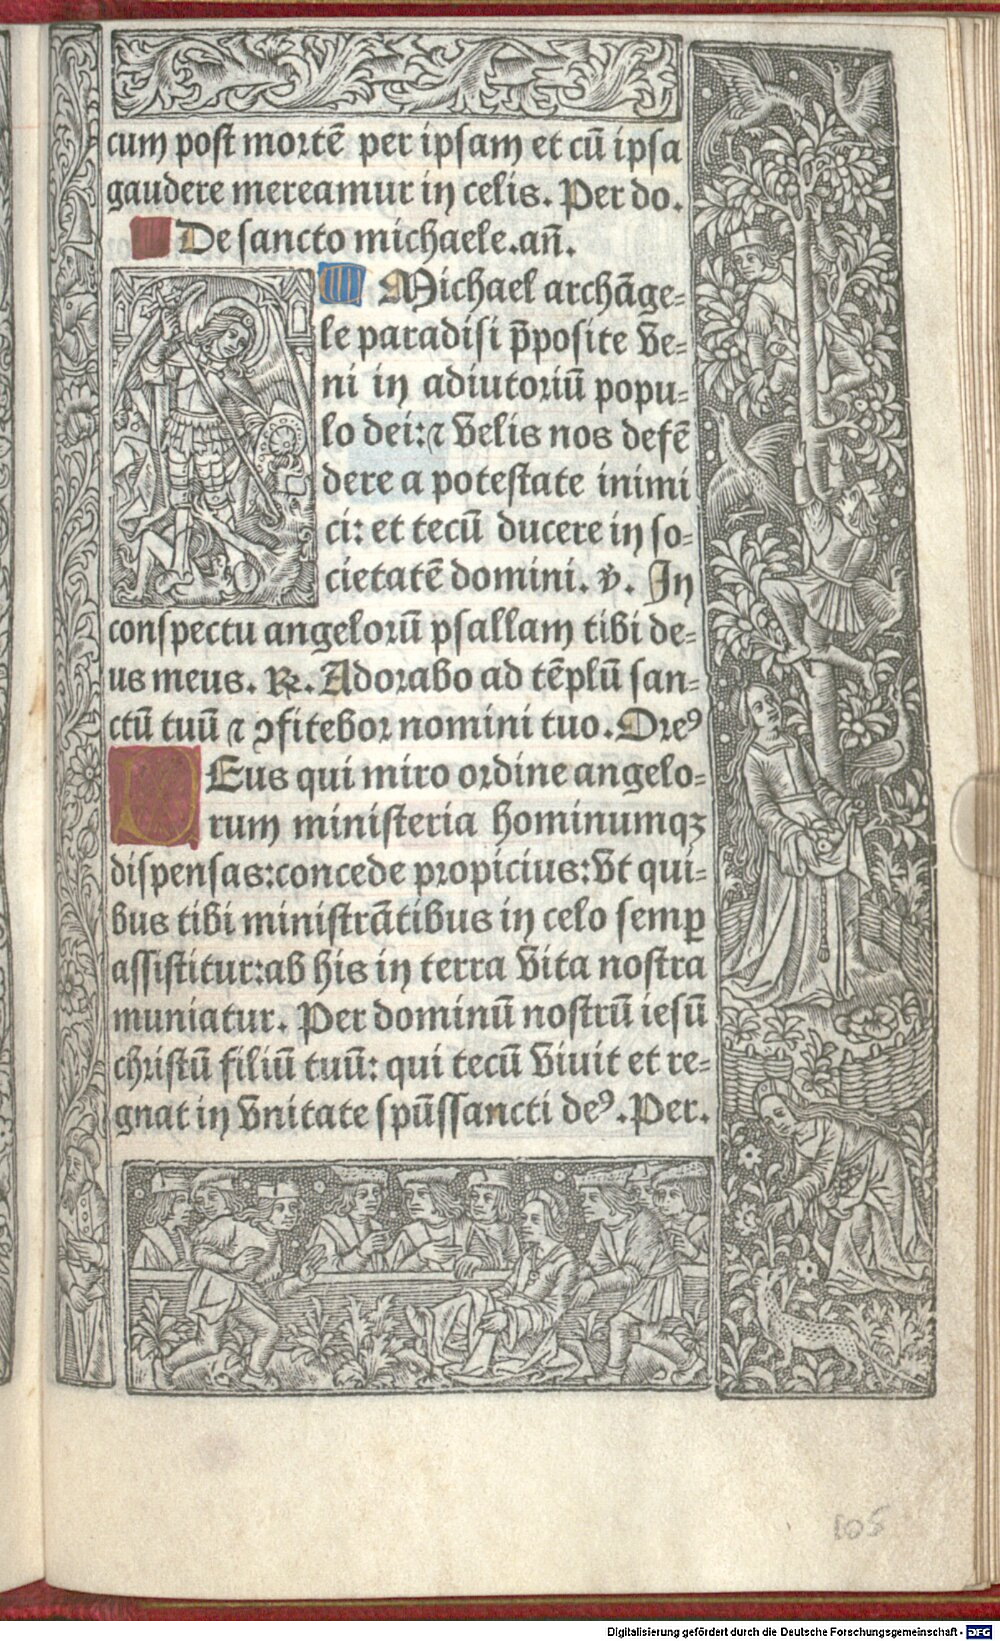 cum post mortē per ipsam et cū ipsa
gaudere mereamur in celis. Per do.
De sancto michaele. añ.
Michael archāge-
le paradisi p̄posite ve-
ni in adiutoriū popu-
lo dei: ⁊ velis nos defē
dere a potestate inimi
ci: et tecū ducere in so-
cietatē domini. ℣. In
conspectu angelorū psallam tibi de-
us meus. ℞. Adorabo ad tēplū san-
ctū tuū ⁊ ꝯfitebor nomini tuo. Oreꝰ
DEus qui miro ordine angelo-
rum ministeria hominumqꝫ
dispensas: concede propicius: vt qui-
bus tibi ministrātibus in celo semꝑ
assistitur: ab his in terra vita nostra
muniatur. Per dominū nostrū iesū
christū filiū tuū: qui tecū viuit et re-
gnat in vnitate spūssancti deꝰ. Per.
105
Digitalisierung gefördert durch die Deutsche Forschungsgemeinschaft - DFG